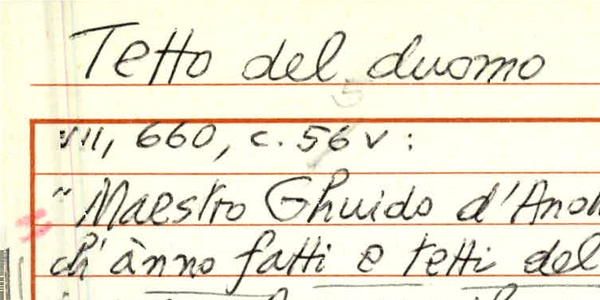 Tetto del duomo
VII, 660, c. 56 v :
" Maestro Ghuido d'
ch' ànno fatti e tetti del